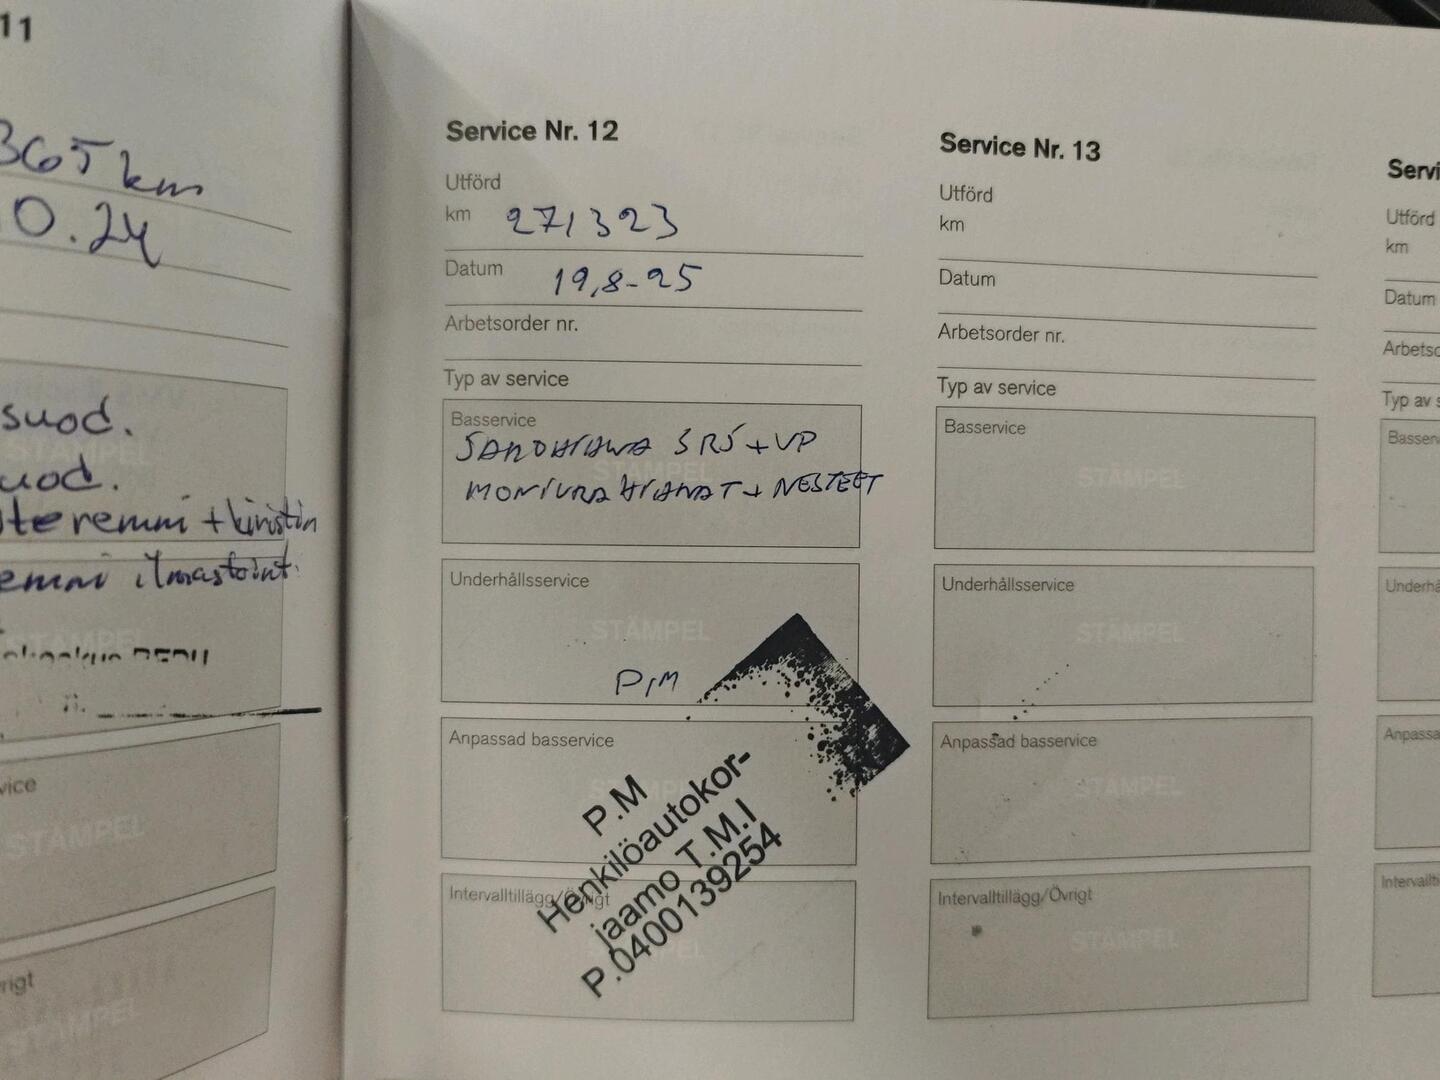 11
365 km
0.24
suod.
uod.
iteremmi + kiristin
emmi ilmastoint.
STÄMPEL
vice
STÄMPEL
rigt
STÄMPEL
Service Nr. 12
Utförd
km 271323
Datum 19,8-25
Arbetsorder nr.
Typ av service
Basservice
+ VP
+ NESTEET
Underhållsservice
STÄMPEL
P,M
Anpassad basservice
P.M
Henkilöautokor-
jaamo T.M.I
P.0400139254
Intervalltillägg/Övrigt
STÄMPEL
Service Nr. 13
Utförd
km
Datum
Arbetsorder nr.
Typ av service
Basservice
STÄMPEL
Underhållsservice
STÄMPEL
Anpassad basservice
STÄMPEL
Intervalltillägg/Övrigt
STÄMPEL
Servi
Utförd
km
Datum
Arbetso
Typ av s
Basserv
Underhå
Anpassa
Intervallti